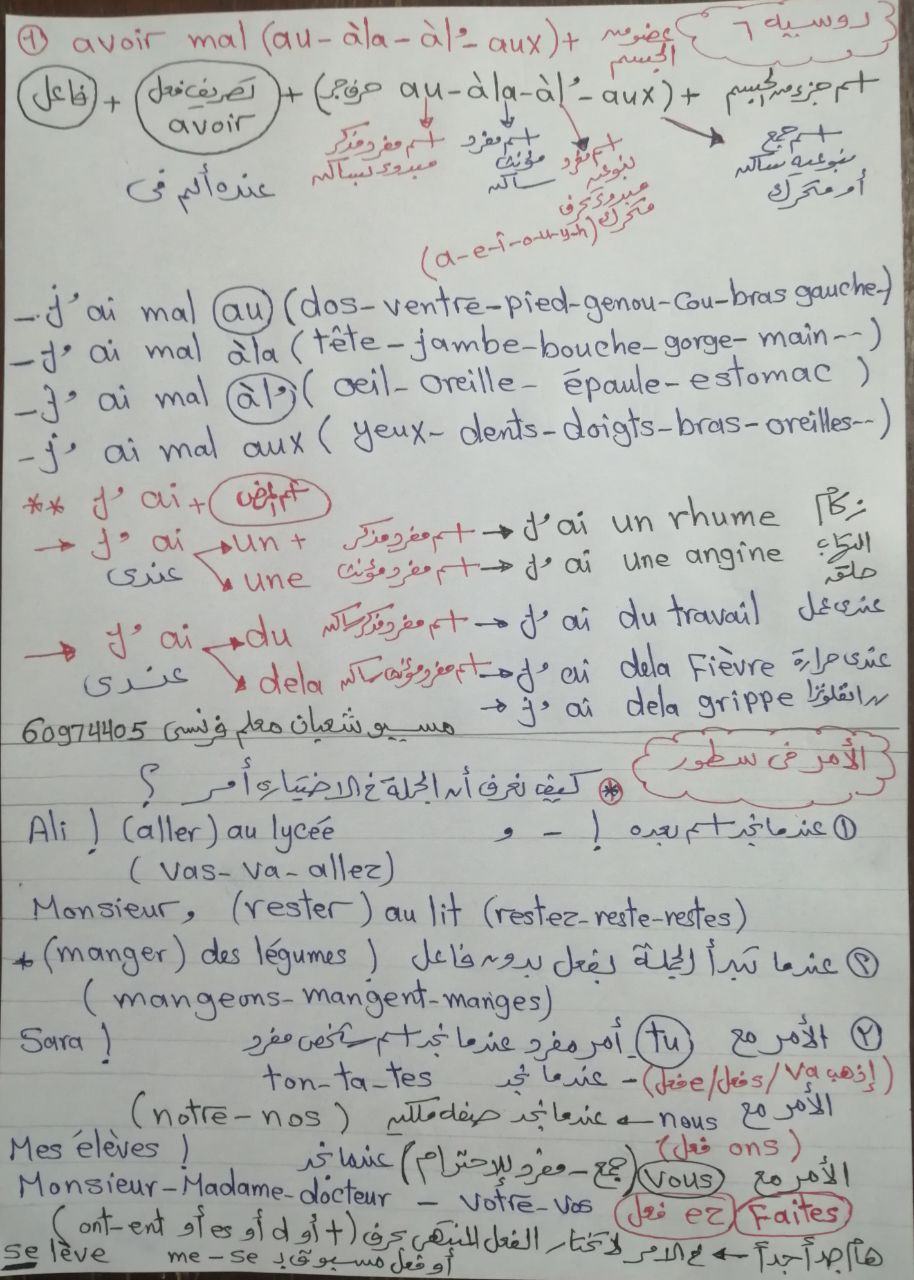 دوسيه ٦
① avoir mal (au - àla - àl' - aux) + عضو من الجسم
فاعل + تصريف فعل avoir + (حرف جر au - àla - àl' - aux) + اسم جزء من الجسم
اسم مفرد مذكر مبدوء بساكن
اسم مفرد مؤنث ساكن
اسم مفرد بنوعيه مبدوء بحرف متحرك
(a-e-i-o-u-y-h)
اسم جمع بنوعيه ساكن أو متحرك
عنده ألم فى
- J' ai mal au (dos - ventre - pied - genou - cou - bras gauche -)
- J' ai mal àla (tête - jambe - bouche - gorge - main --)
- J' ai mal àl' (oeil - oreille - épaule - estomac )
- J' ai mal aux ( yeux - dents - doigts - bras - oreilles --)
** J' ai + اسم المرض
→ J' ai عندى
un + اسم مفرد مذكر → J' ai un rhume زكام
une اسم مفرد مؤنث → J' ai une angine التهاب حلقه
→ J' ai عندى
du اسم مفرد مذكر ساكن → J' ai du travail عندى عمل
dela اسم مفرد مؤنث ساكن → J' ai dela Fièvre عندى حرارة
→ J' ai dela grippe انفلونزا
مسيو شعبان معلم فرنسى 60974405
الأمر فى سطور
* كيف نعرف أن الجملة فى الاختيارى أمر ؟
① عندما نجد اسم بعده ! - و
Ali ! (aller) au lycée
( vas - va - allez)
Monsieur, (rester) au lit (restez - reste - restes)
② عندما تبدأ الجملة بفعل بدون فاعل
* (manger) des légumes !
( mangeons - mangent - manges)
② الأمر مع tu - أمر مفرد عندما نجد اسم شخص مفرد Sara !
(إذهب va / فعل s / فعل e) - عندما نجد ton - ta - tes
الأمر مع nous ← عندما نجد صفه ملكيه (notre - nos )
(فعل ons )
الأمر مع vous (جمع - مفرد للإحترام) عندما نجد Mes élèves !
Monsieur - Madame - docteur - votre - vos
فعل ez Faites
هام جداً جداً ← فى الامر لا تختار الفعل المنتهى بحرف (t أو d أو es أو ont - ent)
أو فعل مسبوق بـ me - se
se lève